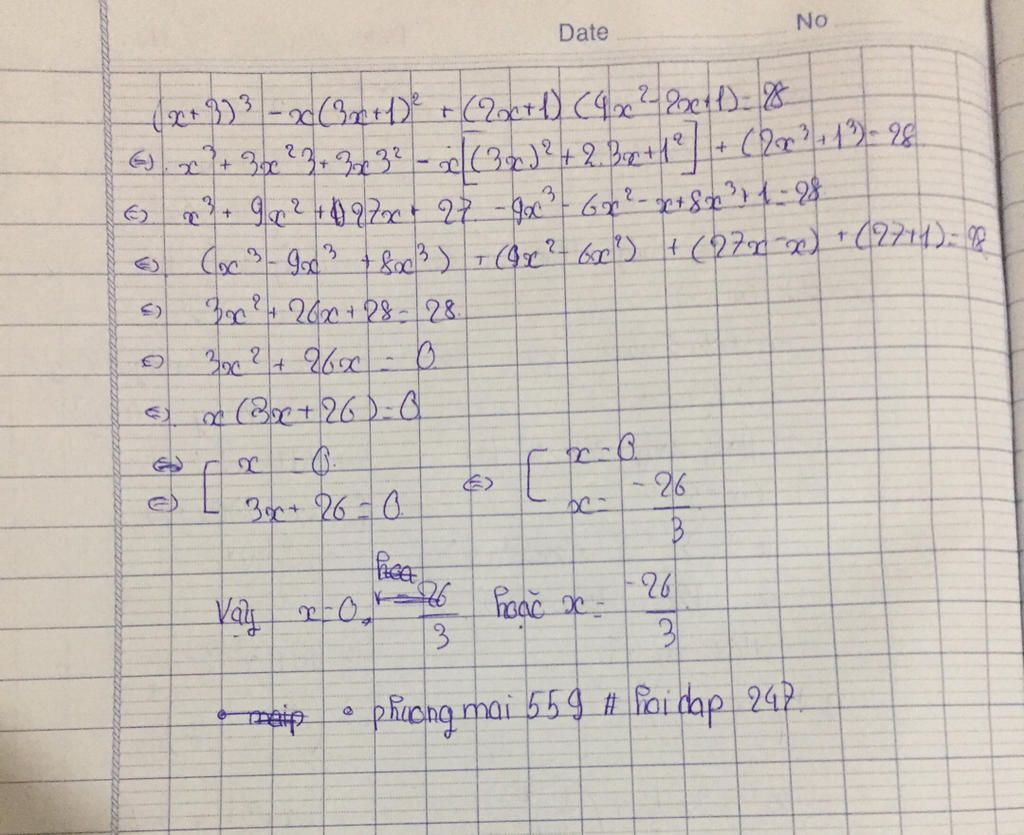 Date No
(x+3)³ - x(3x+1)² + (2x+1) (4x² - 2x+1) = 28
⇔ x³ + 3x²3 + 3x3² - x[(3x)² + 2.3x+1²] + (2x³+1³) = 28
⇔ x³ + 9x² + 27x + 27 - 9x³ - 6x² - x + 8x³ + 1 = 28
⇔ (x³ - 9x³ + 8x³) + (9x² - 6x²) + (27x - x) + (27+1) = 28
⇔ 3x² + 26x + 28 = 28
⇔ 3x² + 26x = 0
⇔ x (3x + 26) = 0
⇔ [ x = 0 ⇔ [ x = 0
⇔ 3x + 26 = 0 x = -26/3
Vậy x = 0, 26/3 hoặc x = -26/3
• phuongmai 559 # hoidap 247